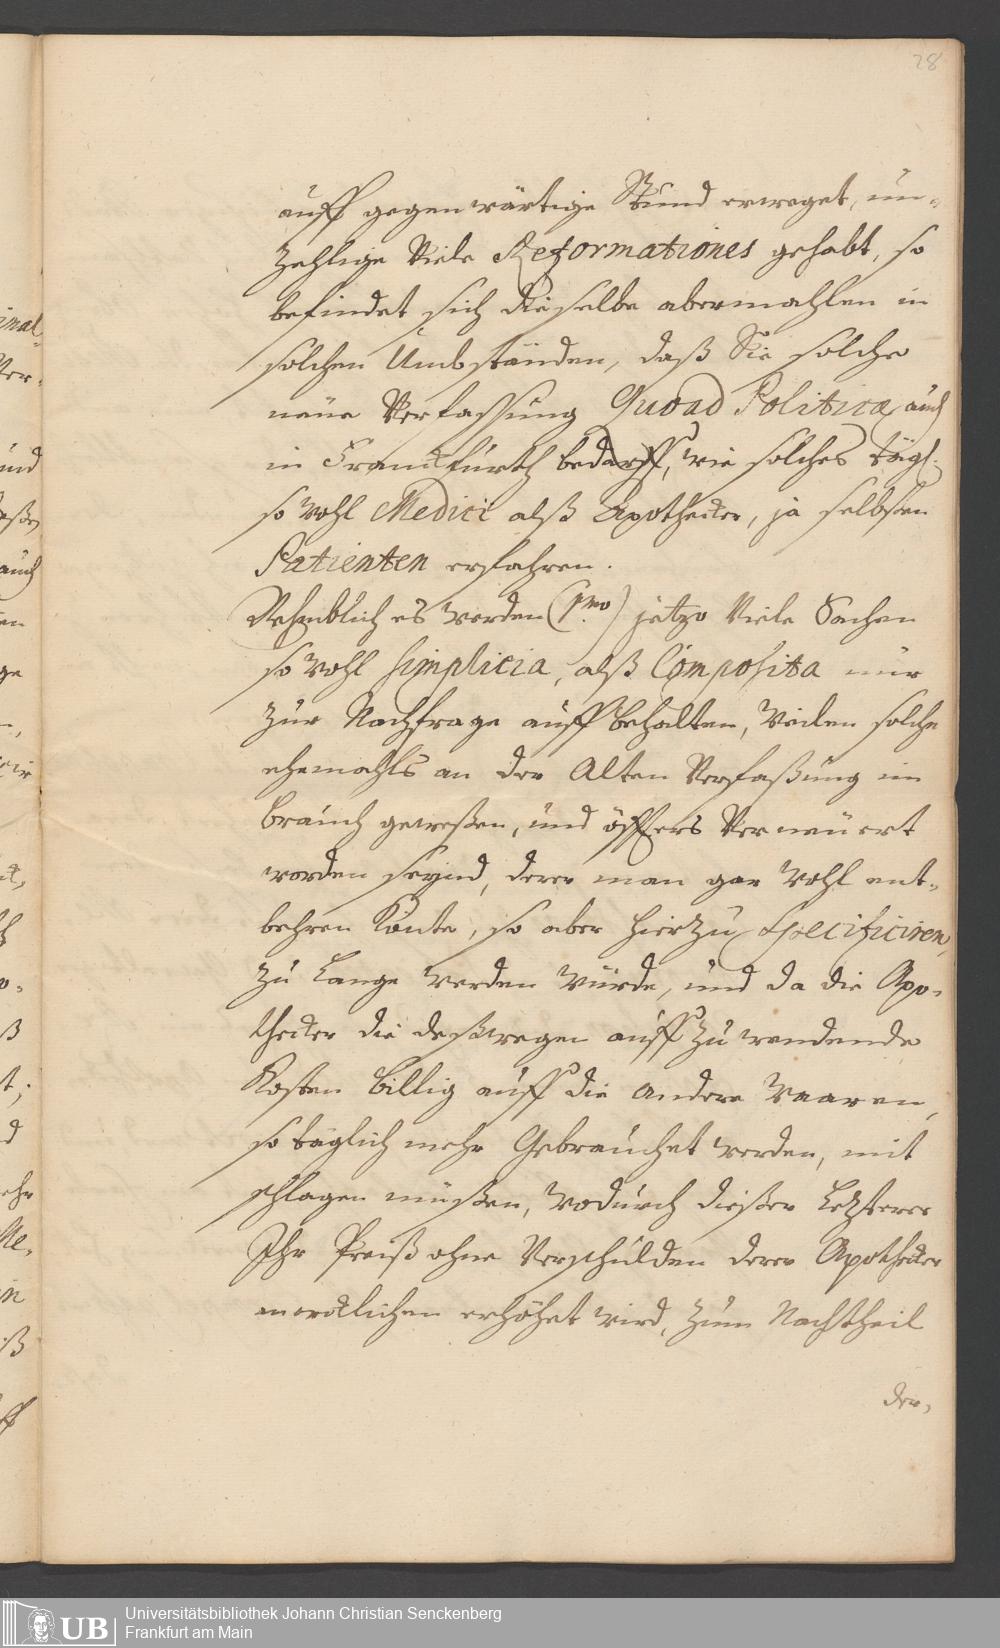 28
auff gegenwärtige Stund erweget, un-
zehlige Viele Reformationes gehabt, so
befindet sich dieselbe abermahlen in
solchen Umbständen, daß Sie solche
neüe Verfassung Quoad Politica auch
in Franckfurth bedarff, wie solches tägl.
so wohl Medici alß Apothecker, ja selbsten
Patienten erfahren.
Nehmblich es werden (1mo.) jetzo Viele Sachen
so wohl Simplicia, alß Composita nur
zur Nachfrage auff behalten, weilen solche
ehemahls an der Alten Verfaßung im
brauch geweßen, und öffters Verneuert
worden seynd, derer man gar wohl ent-
behren Könte, so aber hierzu Specificiren,
zu Lange werden würde, und da die Apo-
thecker die deßwegen auff zu wendende
Kosten billig auff die andere Waaren,
so täglich mehr Gebrauchet werden, mit
schlagen müßen, wodurch dießer Letzterer
Ihr Preiß ohne Verschulden derer Apothecker
mercklichen erhöhet wird, zum Nachtheil
der,
imal-
Ver-
und
auch
en
ge
o-
ß
t;
d
ehr
Me-
in
iß
ff
UB
Universitätsbibliothek Johann Christian Senckenberg
Frankfurt am Main